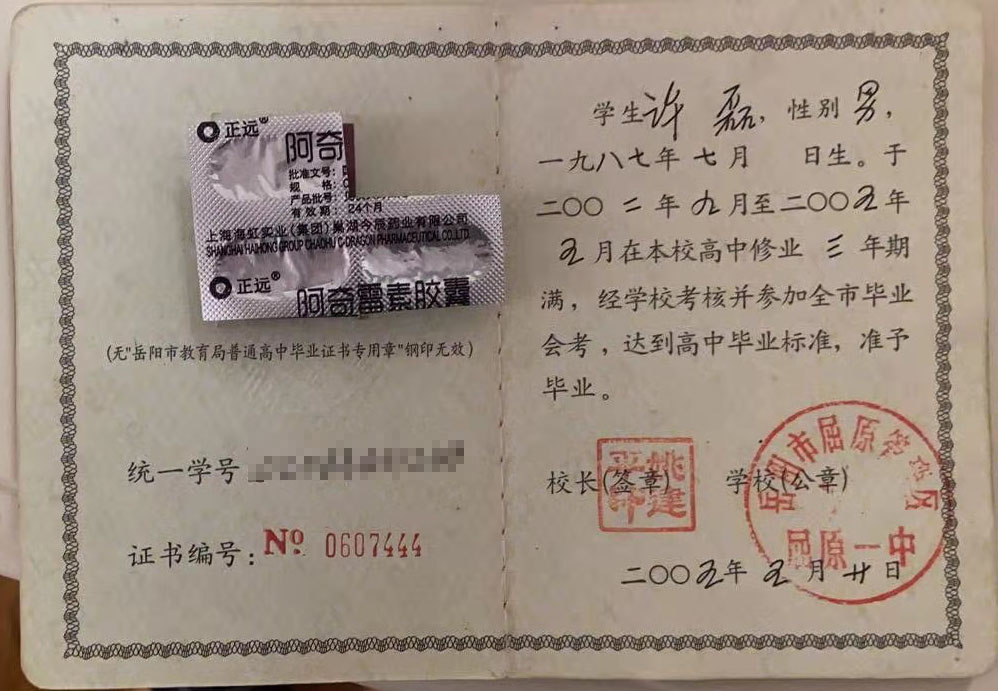 正远®
阿奇
批准文号:
规 格:
产品批号:
有效期: 24个月
上海海虹实业(集团)巢湖今辰药业有限公司
SHANGHAI HAIHONG GROUP CHAOHU C-DRAGON PHARMACEUTICAL CO.,LTD.
正远®
阿奇霉素胶囊
(无"岳阳市教育局普通高中毕业证书专用章"钢印无效)
统一学号
证书编号: Nº 0607444
学生许磊,性别男,
一九八七年七月 日生。于
二〇〇二年九月至二〇〇五年
五月在本校高中修业三年期
满,经学校考核并参加全市毕业
会考,达到高中毕业标准,准予
毕业。
校长(签章) 学校(公章)
市屈原
屈原一中
二〇〇五年五月廿日